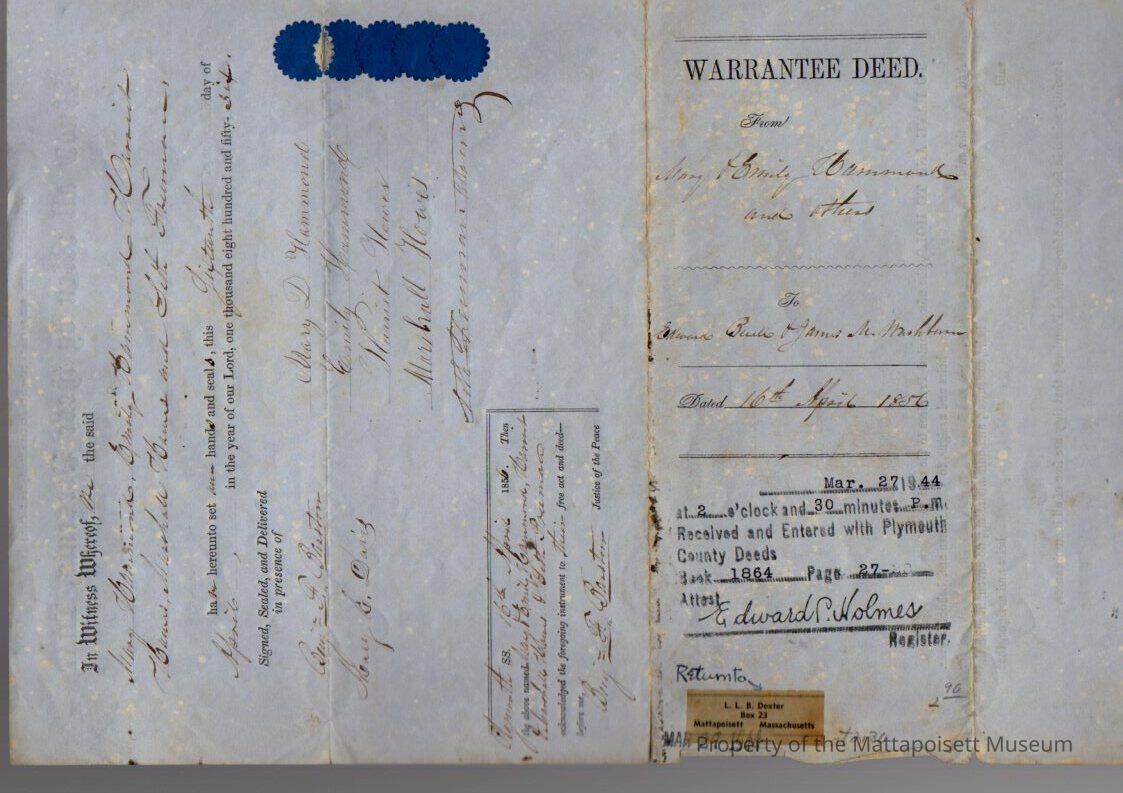 In Witness Whereof, the the said
Mary Hammond, Emily Hammond Harriet
Howes Marshall Howes and Seth Freeman,
ha hereunto set hands and seals, this Sixteenth day of
April in the year of our Lord, one thousand eight hundred and fifty-six.
Signed, Sealed, and Delivered
in presence of
Mary D Hammond
Emily Hammond
Harriet Howes
Marshall Howes
Seth Freeman
Plymouth SS. 16th April 1856. Then
the above named Mary & Emily Hammond, Harriet
& Marshall Howes & Seth Freeman
acknowledged the foregoing instrument to their free act and deed—
before me,
Justice of the Peace
WARRANTEE DEED.
From
Mary & Emily Hammond
and others
To
Edward & James M. Washburn
Dated 16th April 1856
Mar. 27 19 44
at 2 o'clock and 30 minutes P.M.
Received and Entered with Plymouth
County Deeds
Book 1864 Page 27-
Attest
Edward P. Holmes
Register.
Return to
L. L. B. Dexter
Box 23
Mattapoisett Massachusetts
90
Property of the Mattapoisett Museum